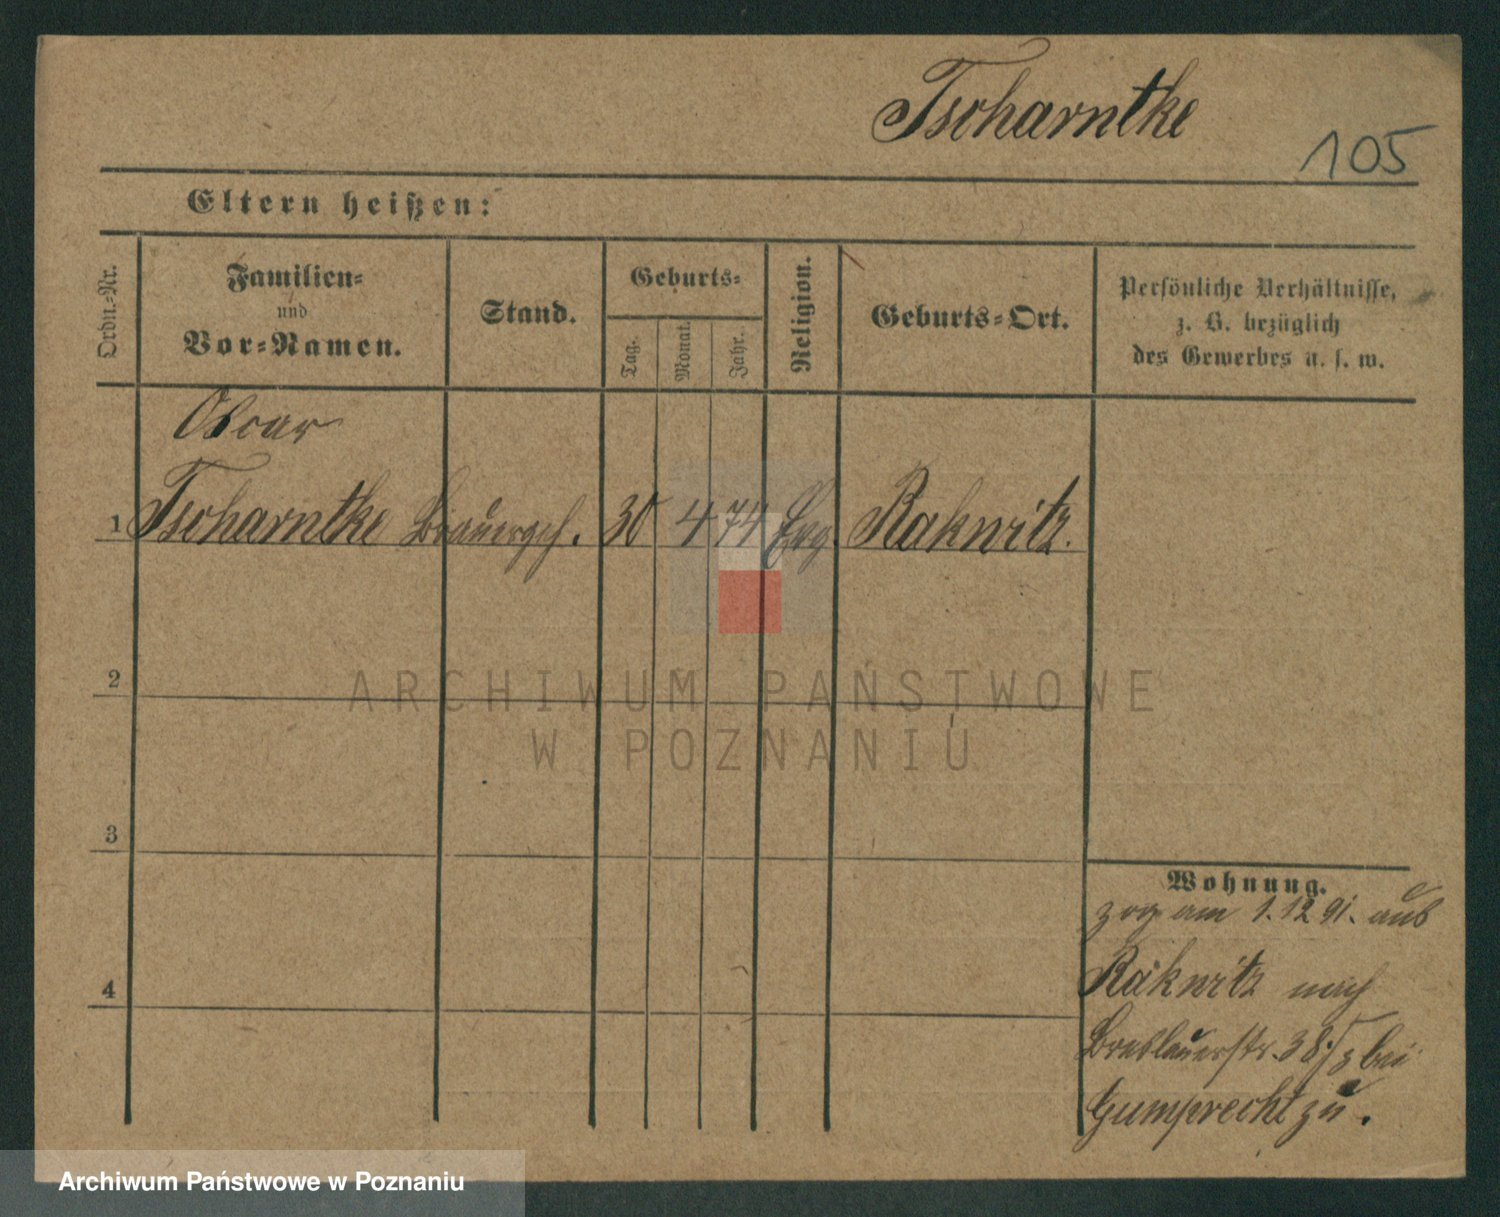 Tscharntke
105
Eltern heißen:
Ordn.-Nr.
Familien-
und
Vor-Namen.
Stand.
Geburts-
Tag.
Monat.
Jahr.
Religion.
Geburts-Ort.
Persönliche Verhältnisse,
z. B. bezüglich
des Gewerbes u. s. w.
Oscar
1 Tscharntke Brauergeh. 30 4 74 Evg. Rakwitz.
2
ARCHIWUM PAŃSTWOWE
W POZNANIU
3
4
Wohnung.
zog am 1.12.91. aus
Rakwitz nach
Breslauerstr. 38. bei
Gumprecht zu.
Archiwum Państwowe w Poznaniu